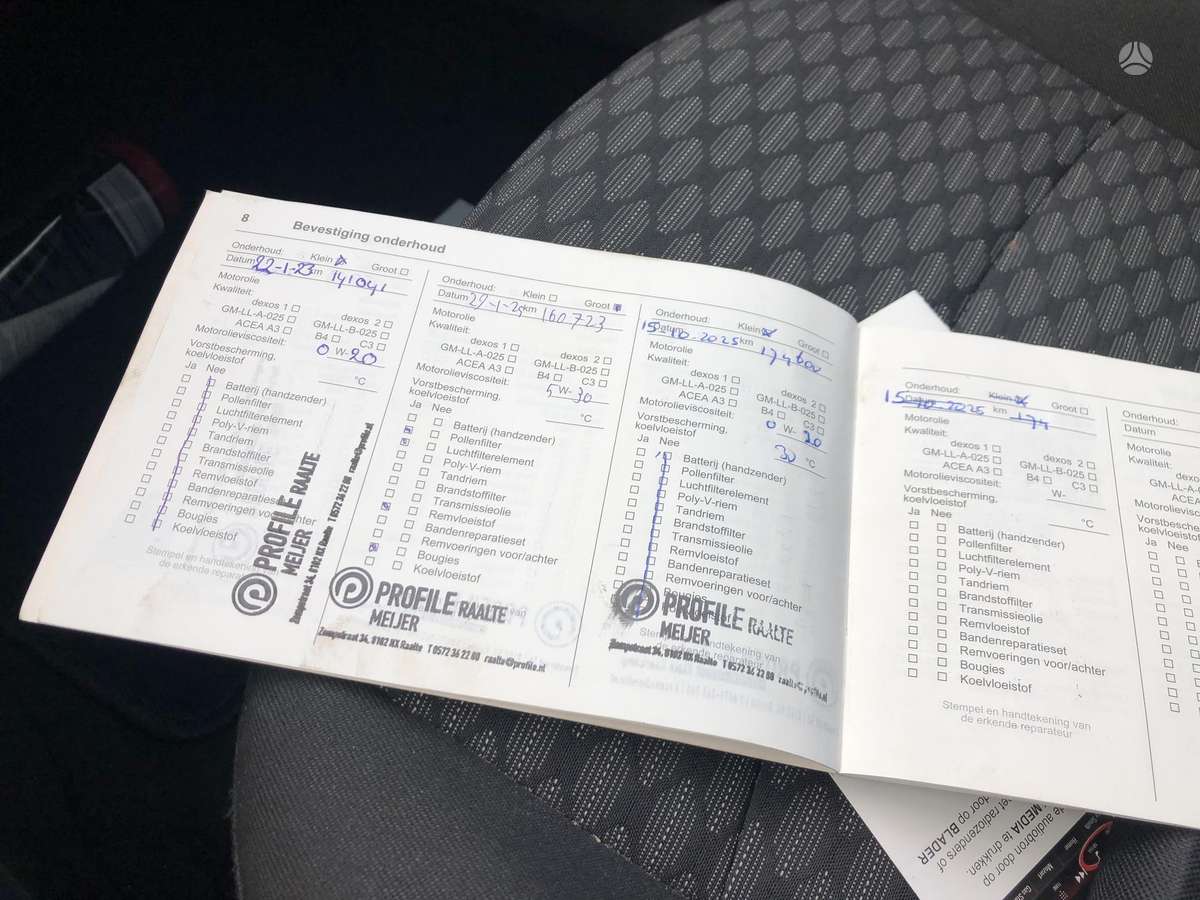 8 Bevestiging onderhoud
Onderhoud: Klein Groot
Datum 22-1-23 km 141041
Motorolie
Kwaliteit:
dexos 1 dexos 2
GM-LL-A-025 GM-LL-B-025
ACEA A3 B4 C3
Motorolieviscositeit: 0 W- 20
Vorstbescherming, koelvloeistof °C
Ja Nee
Batterij (handzender)
Pollenfilter
Luchtfilterelement
Poly-V-riem
Tandriem
Brandstoffilter
Transmissieolie
Remvloeistof
Bandenreparatieset
Remvoeringen voor/achter
Bougies
Koelvloeistof
Stempel en handtekening van
de erkende reparateur
PROFILE RAALTE
MEIJER
T 0572 36 22 08 raalte@profile.nl
Onderhoud: Klein Groot
Datum km 160.723
Motorolie
Kwaliteit:
dexos 1 dexos 2
GM-LL-A-025 GM-LL-B-025
ACEA A3 B4 C3
Motorolieviscositeit: 5 W- 30
Vorstbescherming,
koelvloeistof °C
Ja Nee
Batterij (handzender)
Pollenfilter
Luchtfilterelement
Poly-V-riem
Tandriem
Brandstoffilter
Transmissieolie
Remvloeistof
Bandenreparatieset
Remvoeringen voor/achter
Bougies
Koelvloeistof
PROFILE RAALTE
MEIJER
34, 8102 HX Raalte T 0572 36 22 08 raalte@profile.nl
Onderhoud: Klein Groot
Datum 15-10-2025 km 174600
Motorolie
Kwaliteit:
dexos 1 dexos 2
GM-LL-A-025 GM-LL-B-025
ACEA A3 B4 C3
Motorolieviscositeit: 0 W- 20
Vorstbescherming,
koelvloeistof 30 °C
Ja Nee
Batterij (handzender)
Pollenfilter
Luchtfilterelement
Poly-V-riem
Tandriem
Brandstoffilter
Transmissieolie
Remvloeistof
Bandenreparatieset
Remvoeringen voor/achter
Bougies
PROFILE RAALTE
MEIJER
34, 8102 HX Raalte T 0572 36 22 08 raalte@profile.nl
Onderhoud: Klein Groot
Datum 15-10-2025 km 174
Motorolie
Kwaliteit:
dexos 1 dexos 2
GM-LL-A-025 GM-LL-B-025
ACEA A3 B4 C3
Motorolieviscositeit: W-
Vorstbescherming,
koelvloeistof °C
Ja Nee
Batterij (handzender)
Pollenfilter
Luchtfilterelement
Poly-V-riem
Tandriem
Brandstoffilter
Transmissieolie
Remvloeistof
Bandenreparatieset
Remvoeringen voor/achter
Bougies
Koelvloeistof
Stempel en handtekening van
de erkende reparateur
Onderhoud:
Datum
Motorolie
Kwaliteit:
GM-LL-A-025
ACEA A3
Ja Nee
audiobron door op
MEDIA te drukken.
radiozenders of
door op BLADER